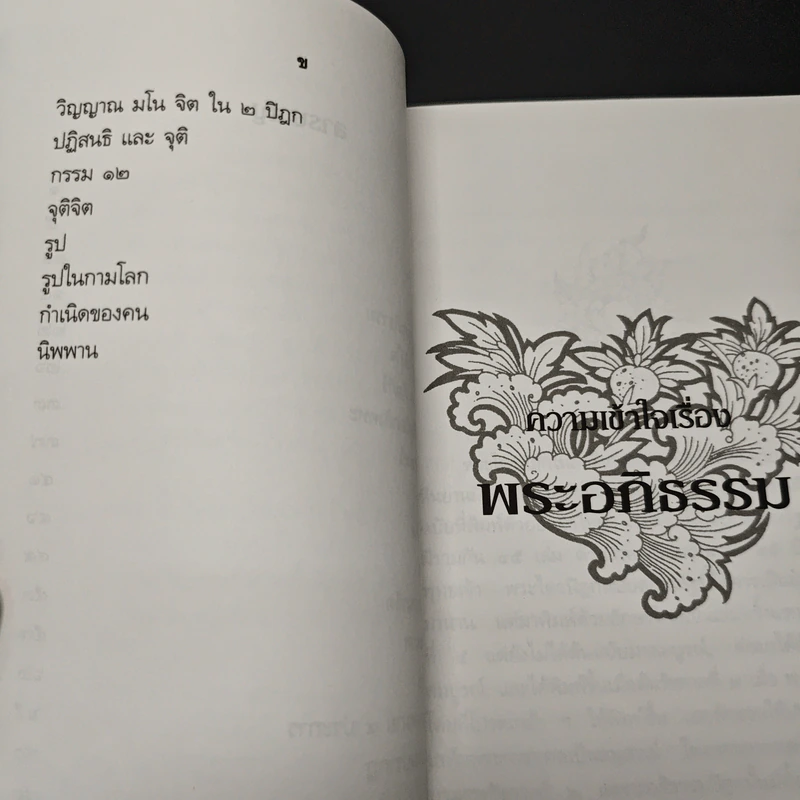 ข
วิญญาณ มโน จิต ใน ๒ ปิฎก
ปฏิสนธิ และ จุติ
กรรม ๑๒
จุติจิต
รูป
รูปในกามโลก
กำเนิดของคน
นิพพาน
ความเข้าใจเรื่อง
พระอภิธรรม